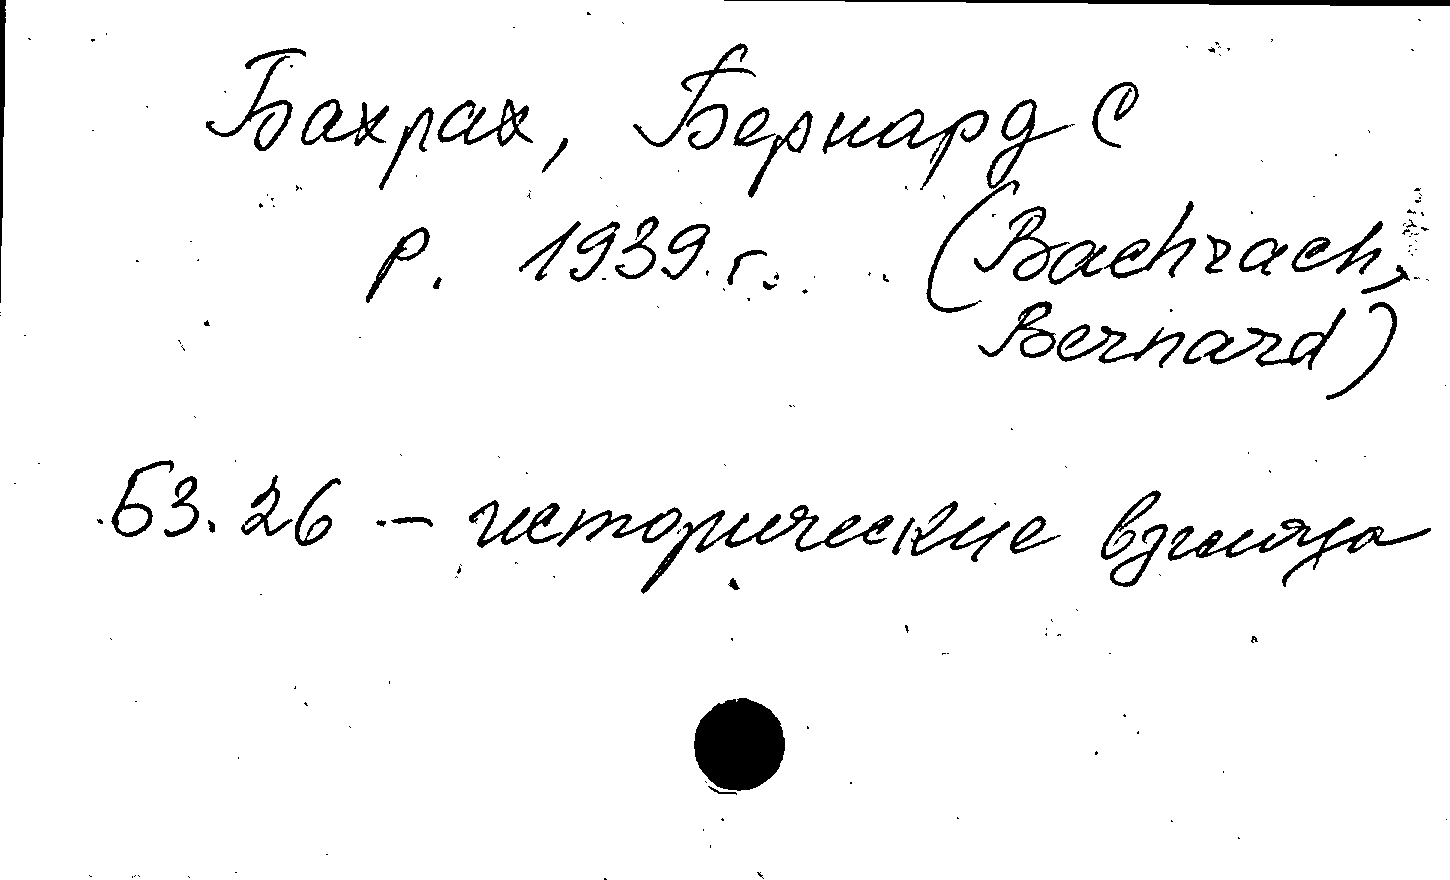 Бахрах, Бернард С
р. 1939 г. (Bachrach,
Bernard)
Б3.26 - исторические взгляды